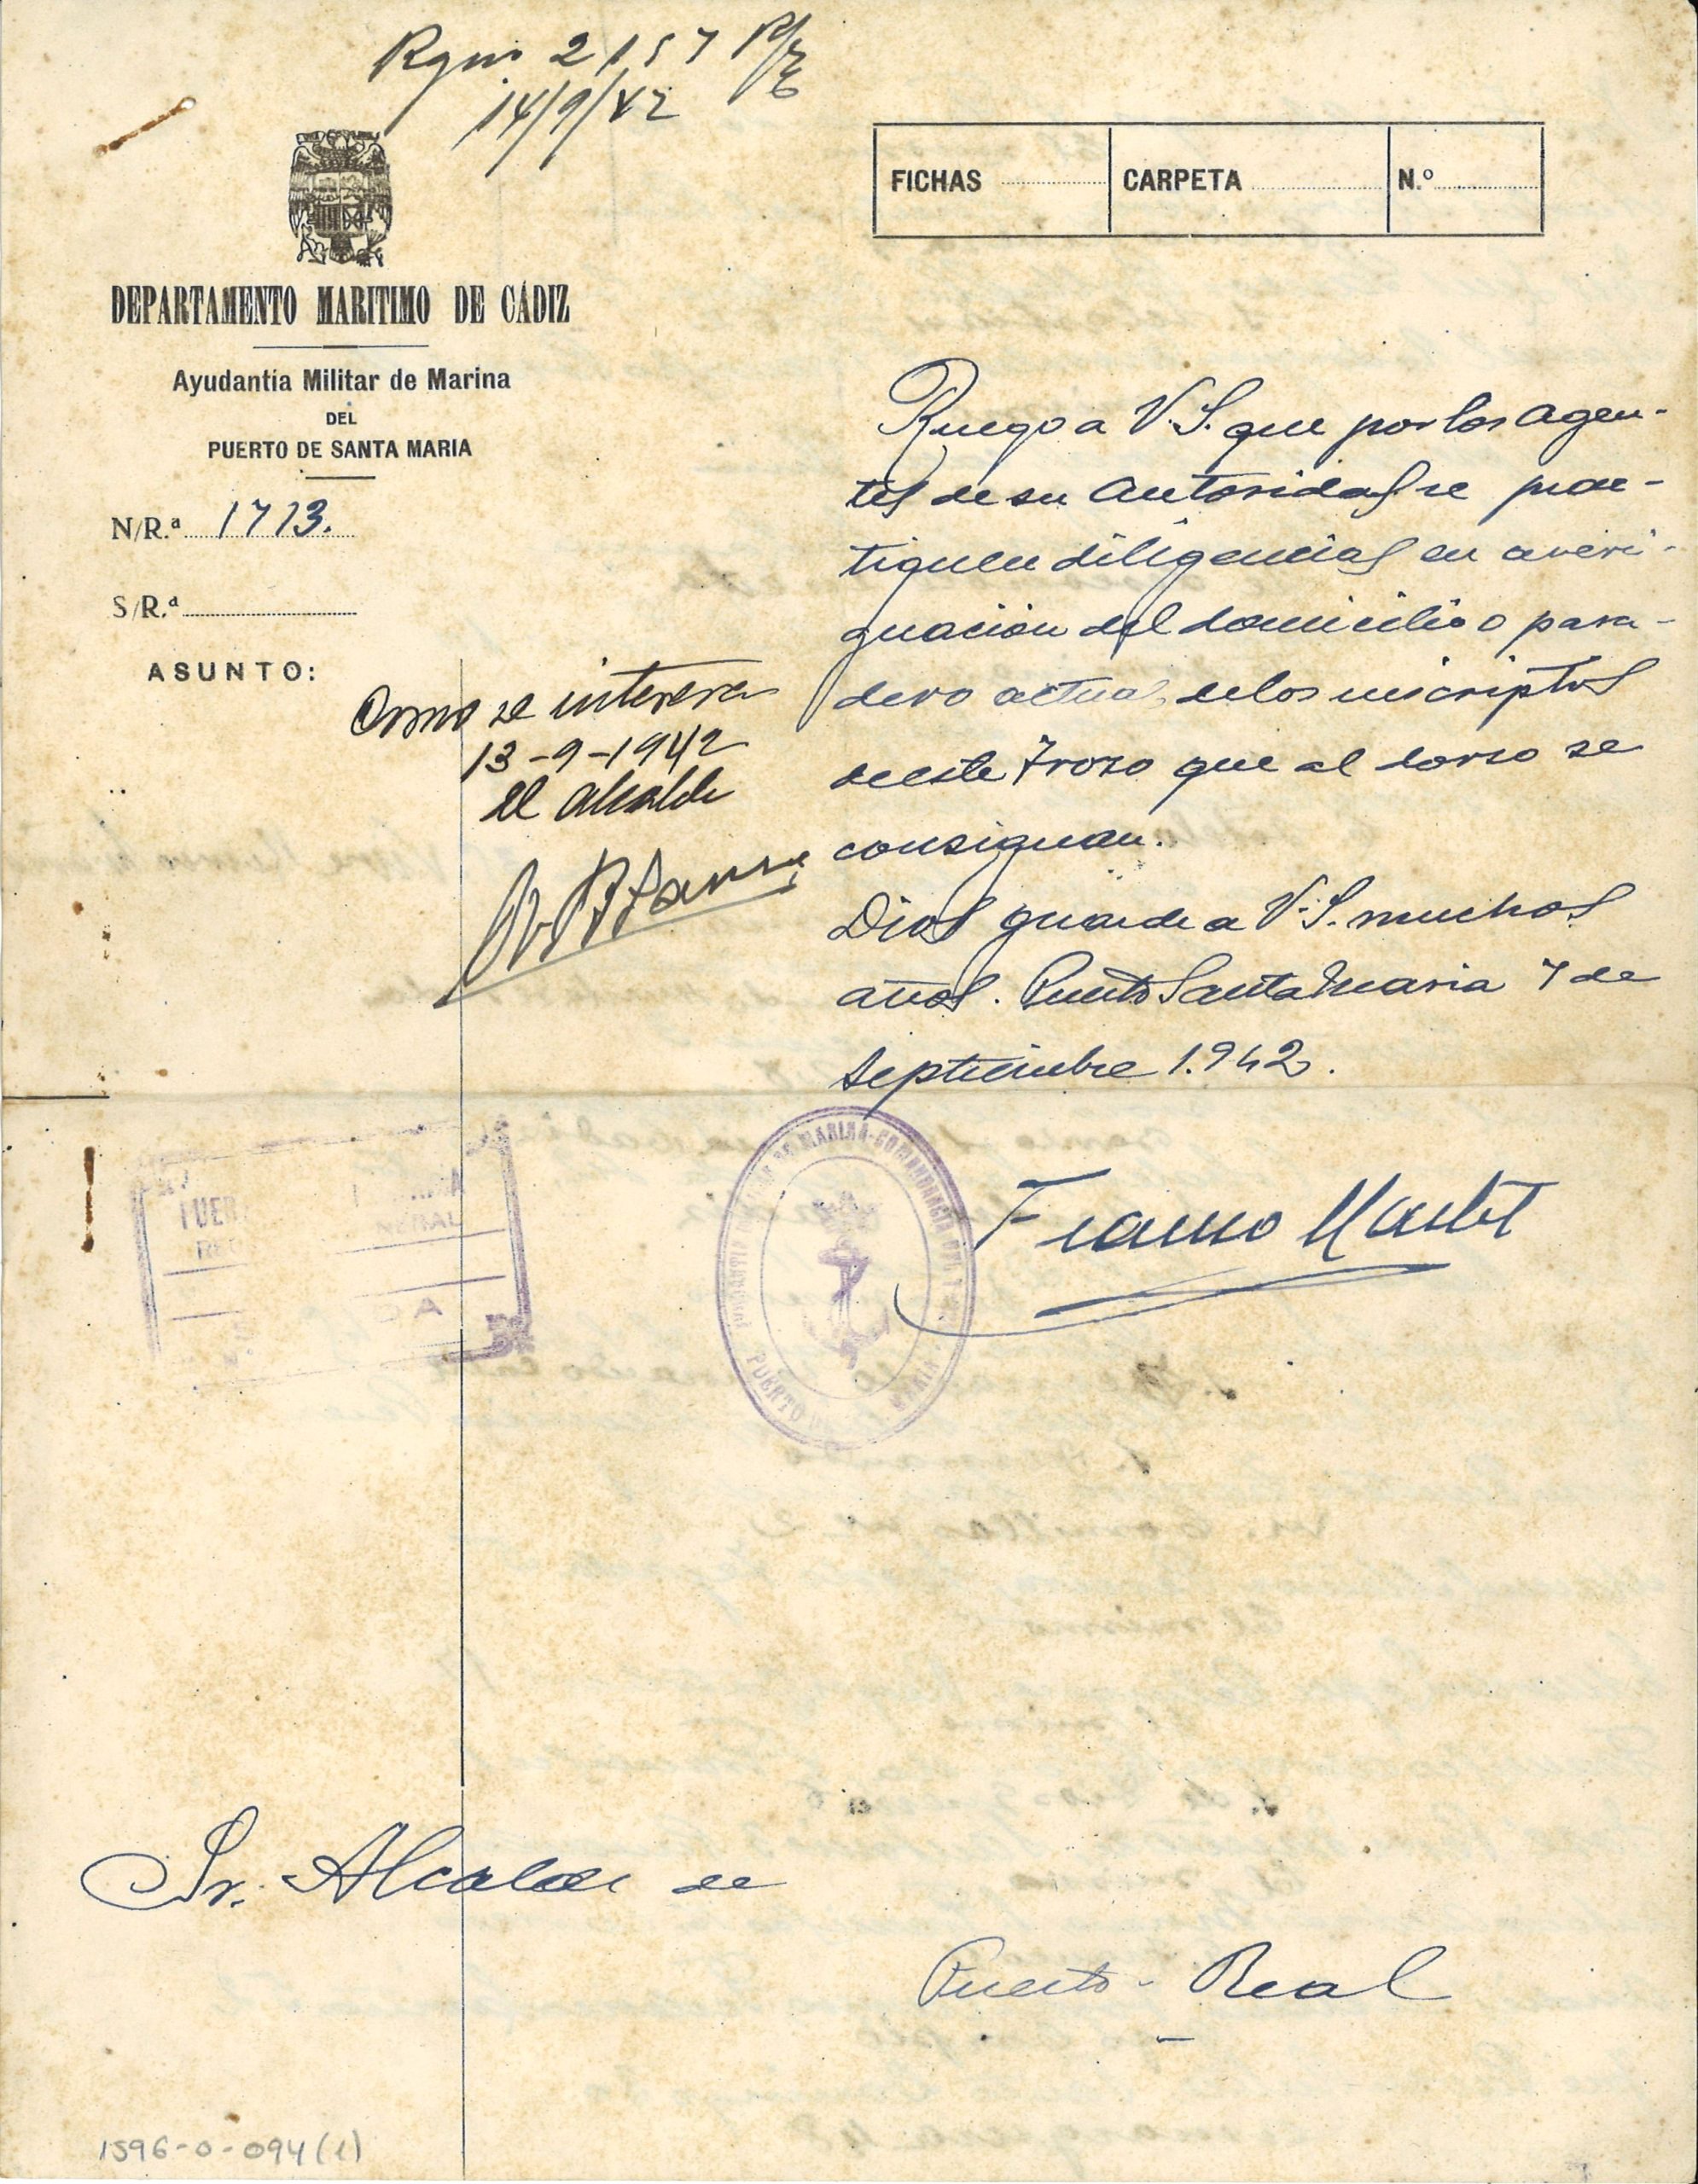 Rgtro 2157
14/9/42
FICHAS
CARPETA
N.º
DEPARTAMENTO MARITIMO DE CÁDIZ
Ayudantía Militar de Marina
DEL
PUERTO DE SANTA MARIA
N/R.ª 1713.
S/R.ª
ASUNTO:
Como se interesa
13-9-1942
El Alcalde
Ruego a V.S. que por los agen-
tes de su Autoridad se prac-
tiquen diligencias en averi-
guación del domicilio o para-
dero actual de los inscriptos
de este Trozo que al dorso se
consignan.
Dios guarde a V.S. muchos
años. Puerto Santa Maria 7 de
Septiembre 1.942.
MARINA-COMANDANCIA
PUERTO DE MARIA
Sr. Alcalde de
Puerto-Real
1596-0-094(1)